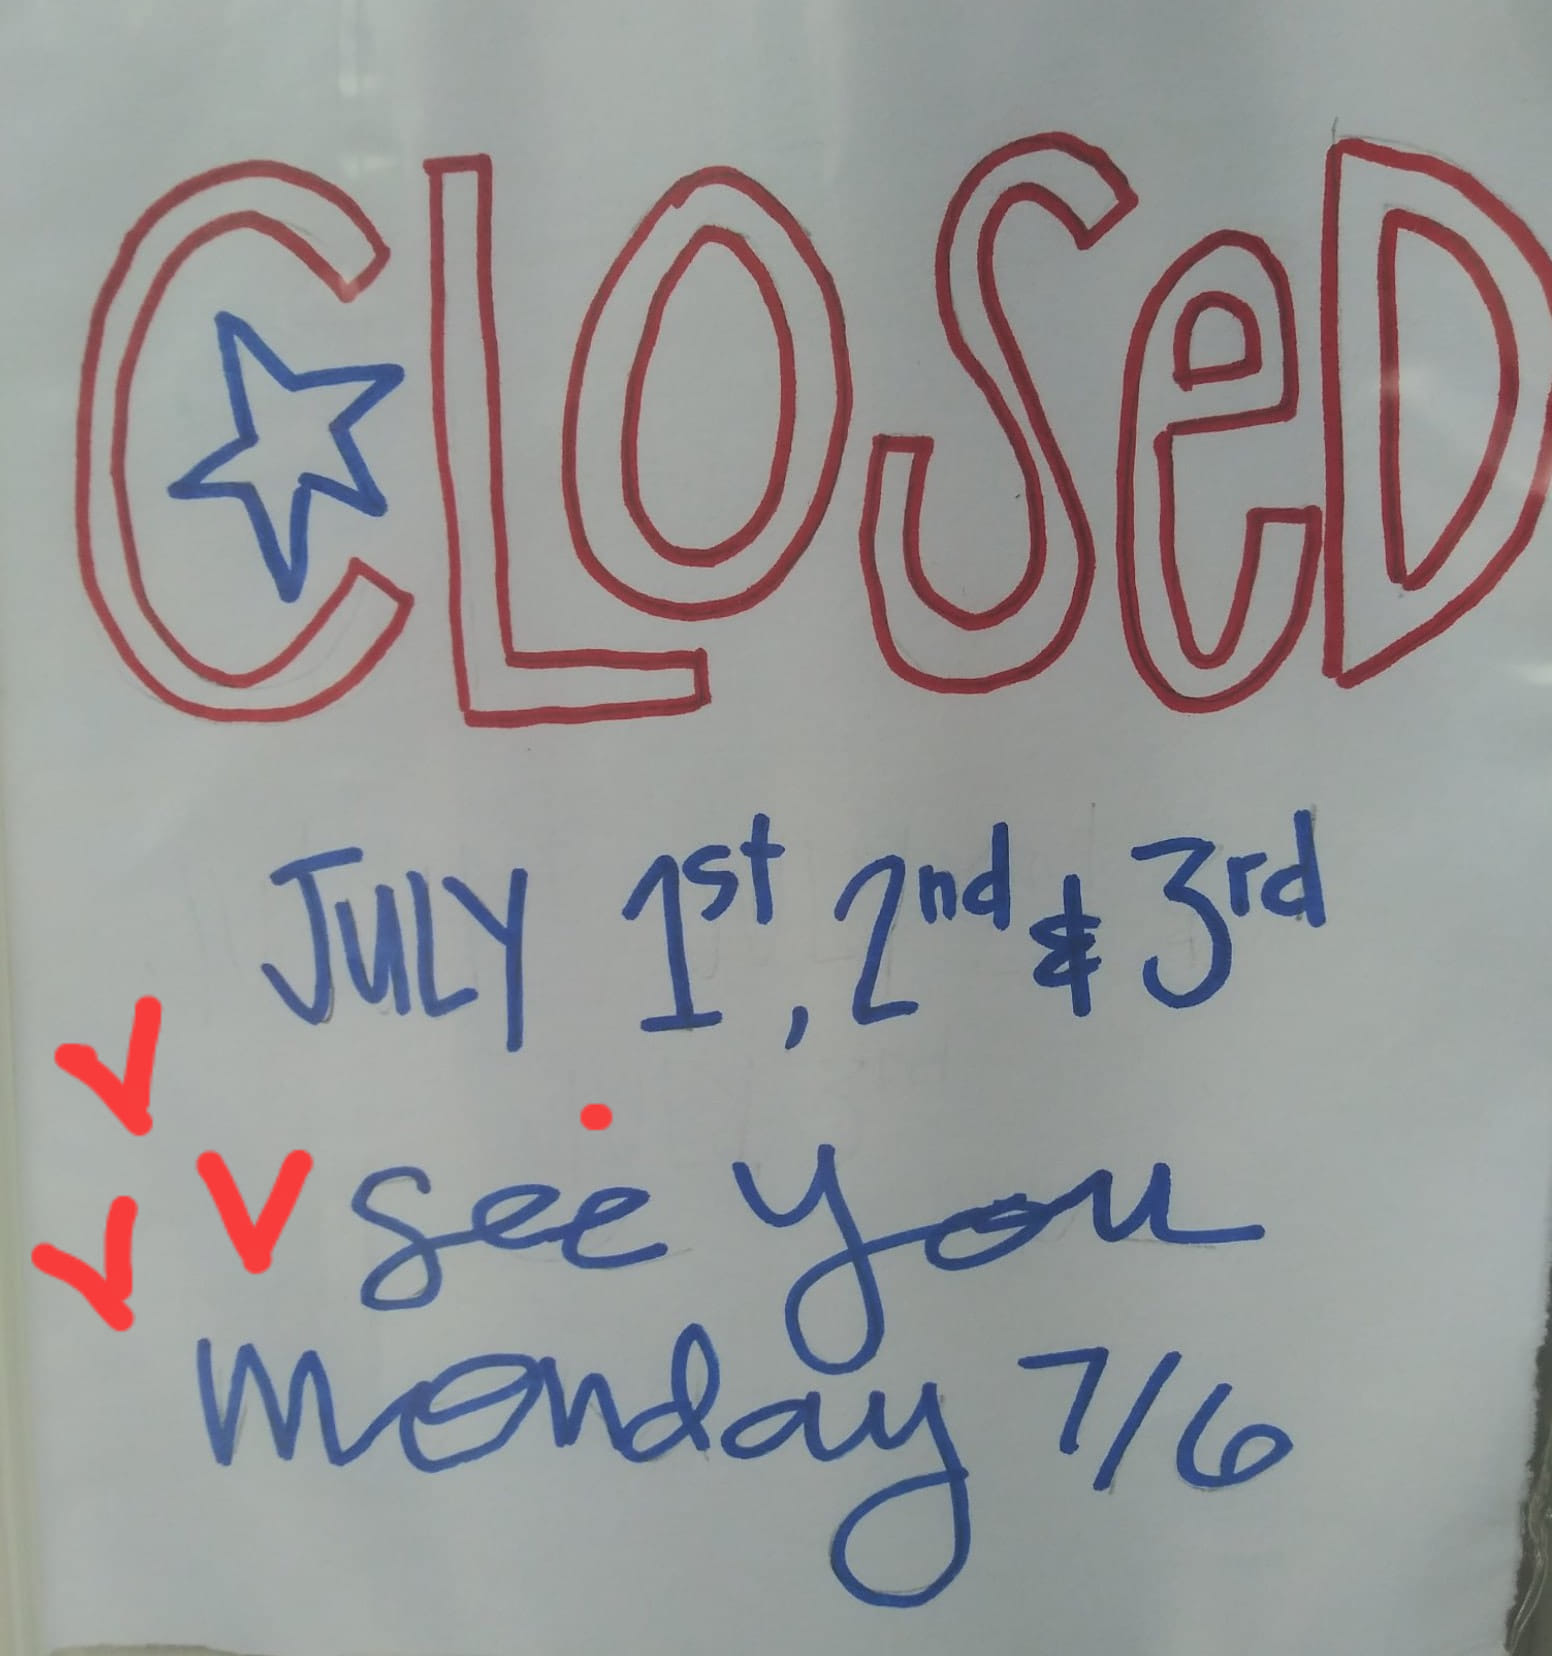 CLOSeD
JULY 1st, 2nd & 3rd
see you
monday 7/6